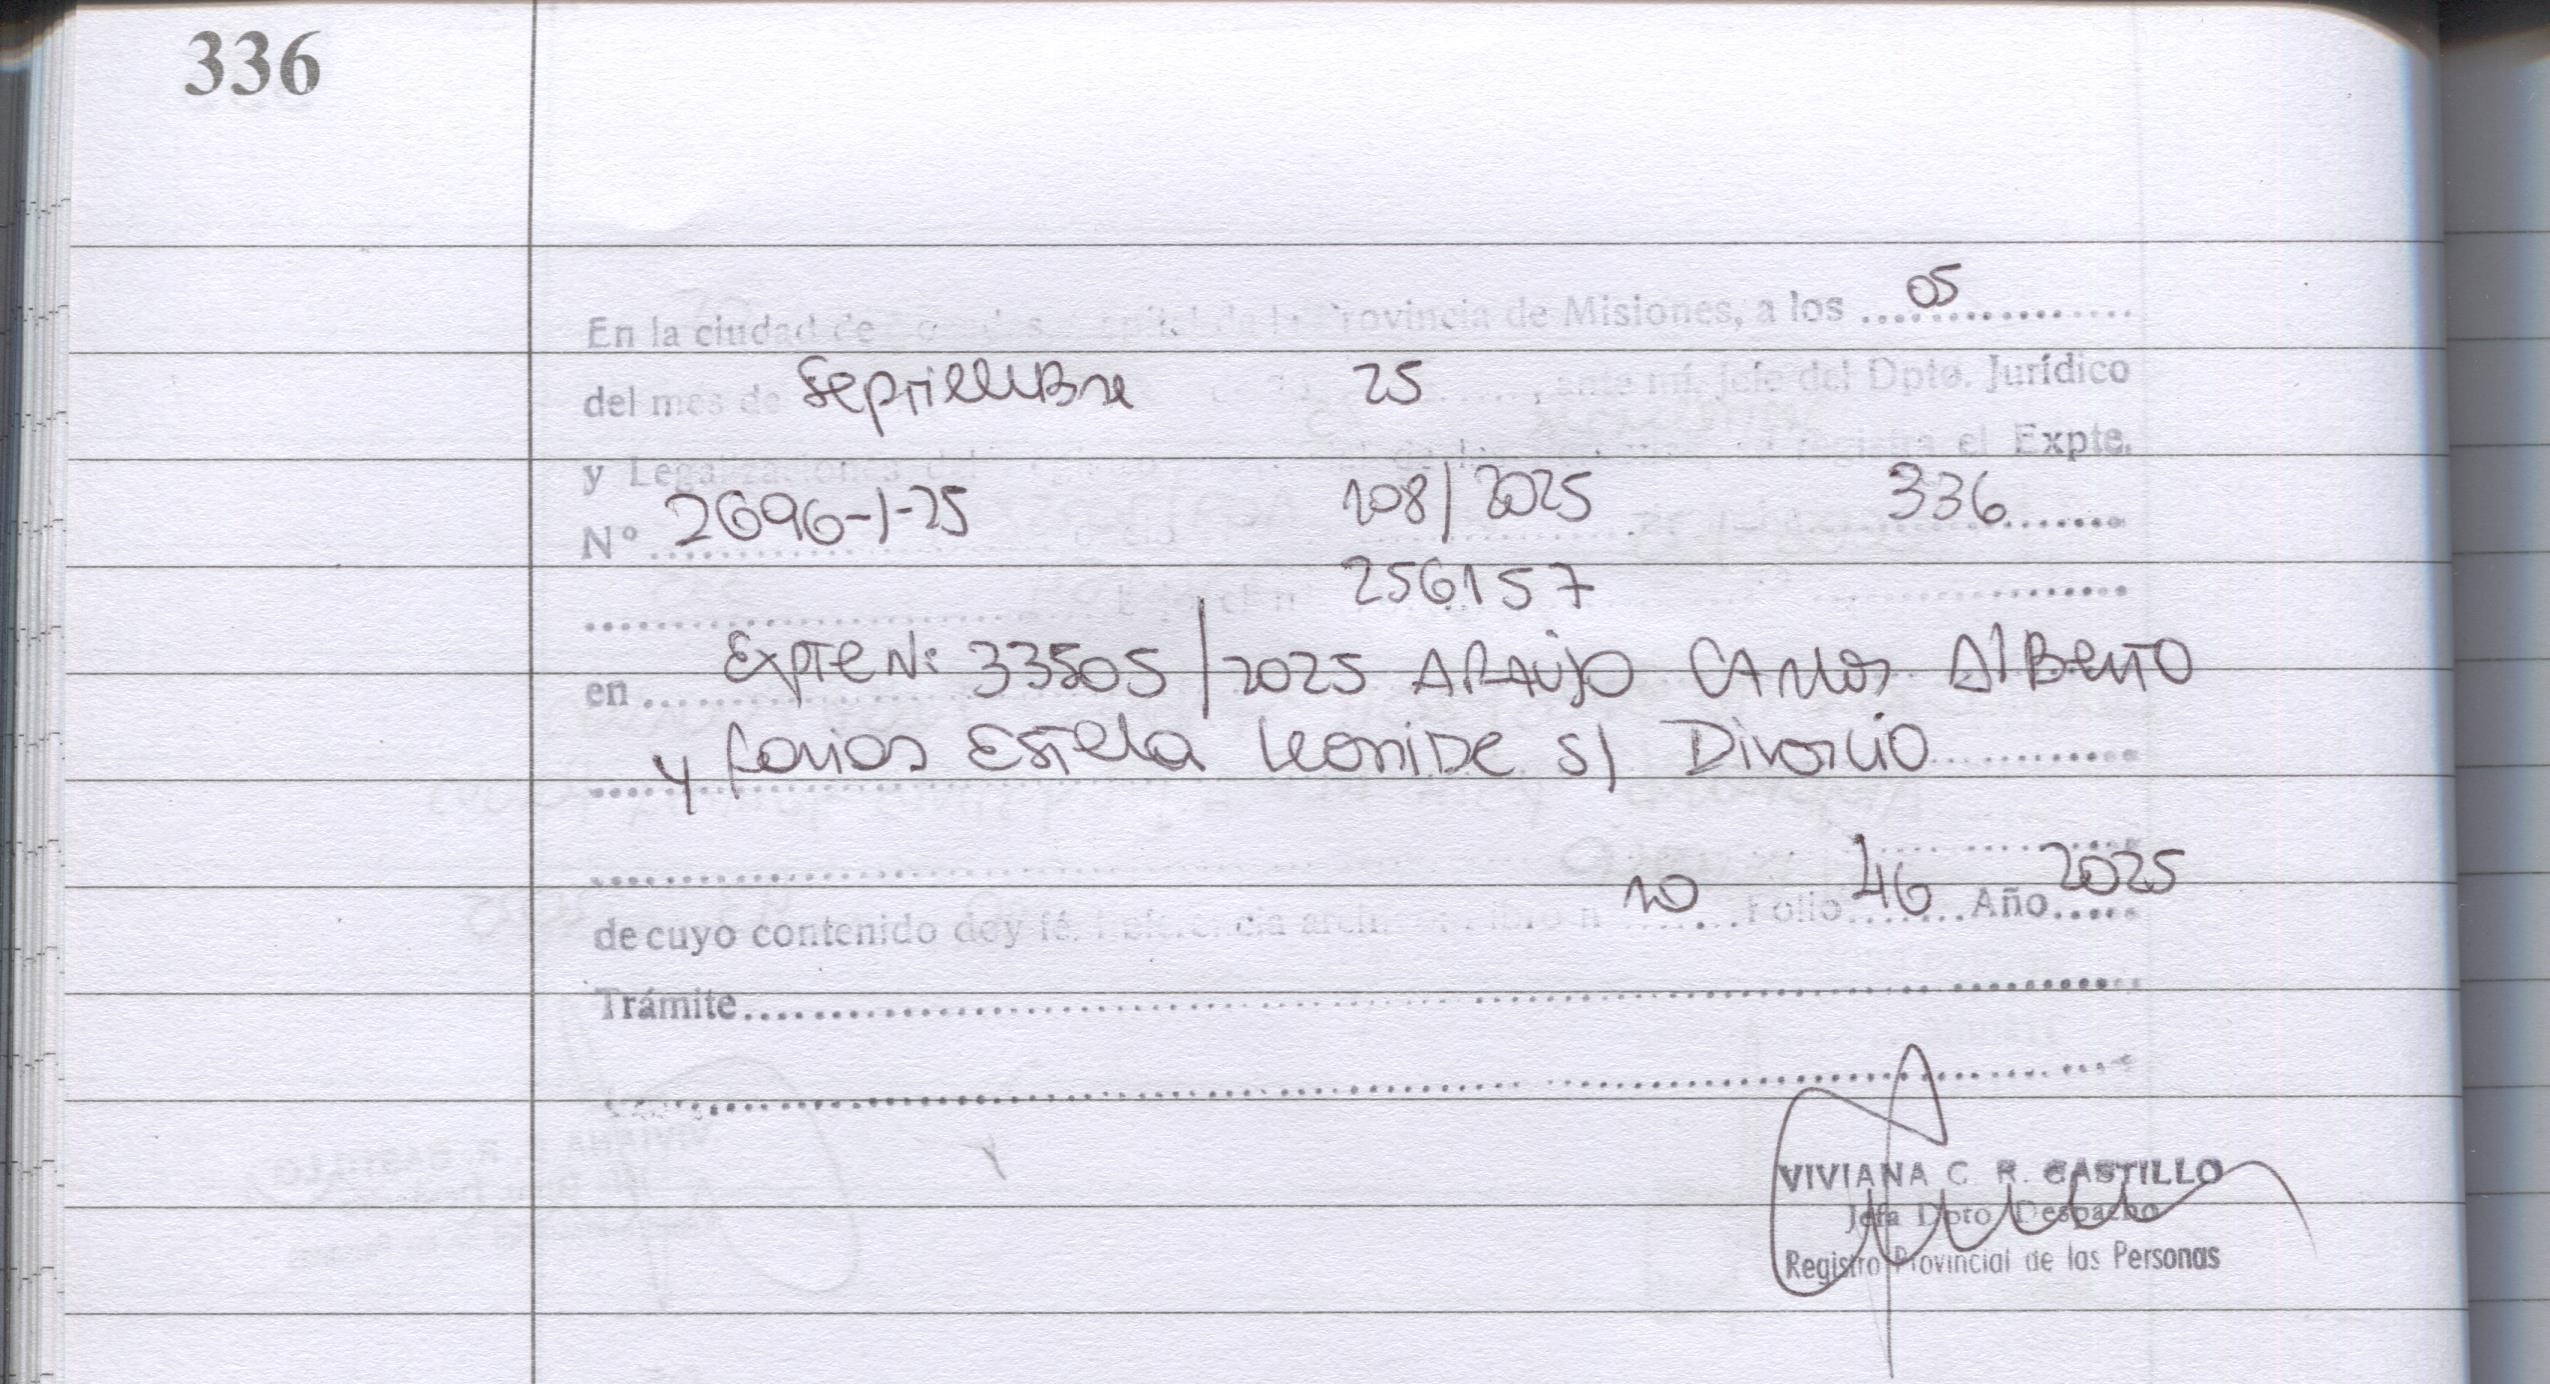 336
En la ciudad de Provincia de Misiones, a los 05
del mes de Septiembre 25, ante mí, jefe del Dpto. Jurídico
y Legalizaciones del registra el Expte.
Nº 2696-1-25 108/2025 336
256157
en Expte N: 33505/2025 ARAUJO CARlos AlBerto
y farias Estela leoniDe s/ Divorcio
de cuyo contenido doy fé. Referencia archivo Libro n 10 Folio 46 Año 2025
Trámite
VIVIANA C. R. CASTILLO
Jefa Dpto Despacho
Registro Provincial de las Personas